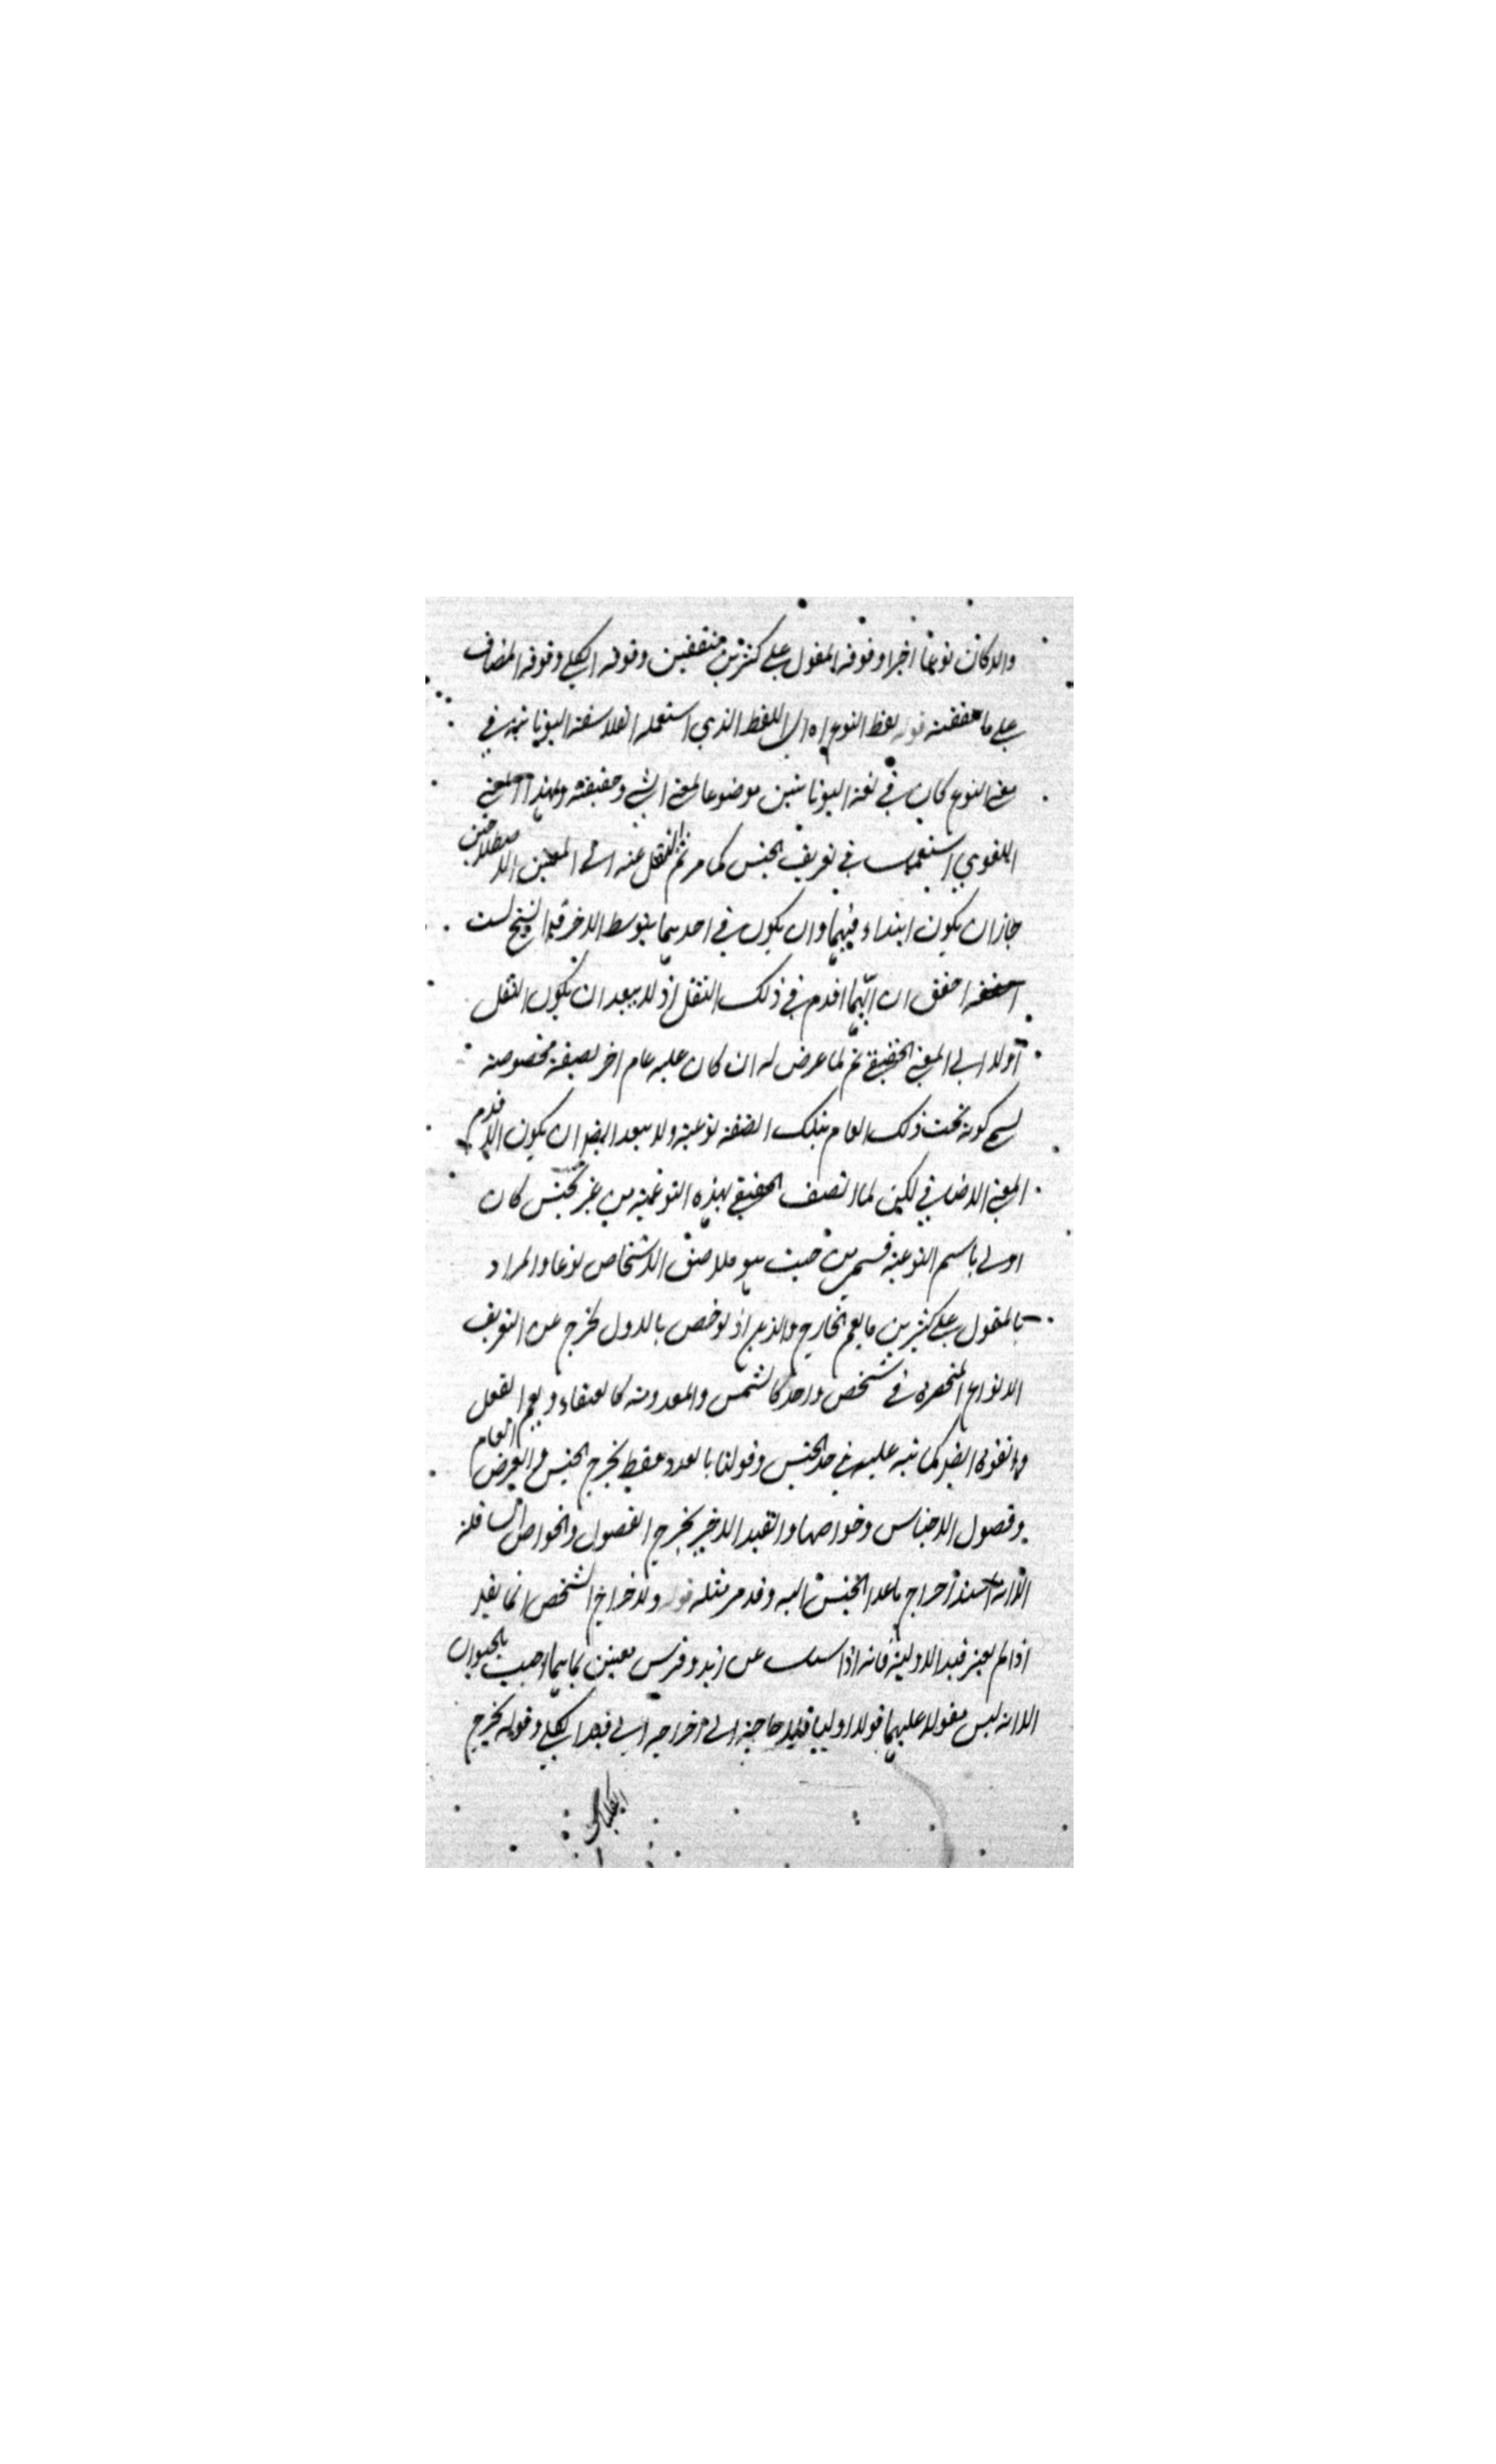 والا كان نوعا اخر او فوقه المقول على كثيرين متفقين وفوقه الكلي وفوقه المضاف
على ما حققته قوله لفظ النوع اه اي اللفظ الذي استعمله الفلاسفة اليونانية في
معنى النوع كان في لغة اليونانيين موضوعا لمعنى الشيء وحقيقته وبهذا المعنى
اللغوي استعمل في تعريف الجنس كما مر ثم النقل عنه الى المعنيين الاصطلاحيين
جاز ان يكون ابتداء فيهما وان يكون في احديهما بتوسط الاخر قوله والشيخ لست
احقق ان ايهما اقدم في ذلك النقل اذ لا يبعد ان يكون النقل
اولا الى المعنى الحقيقي ثم لما عرض له ان كان عليه عام اخر بصيغة مخصوصة
سمي كونه تحت ذلك العام بتلك الصفة نوعية ولا يبعد ايضا ان يكون الاقدم
المعنى الاضافي لكن لما اتصف الحقيقي بهذه النوعية من غير تجنس كان
اولى باسم النوعية فسمي من حيث هو ملاصق الاشخاص نوعا والمراد
بالمقول على كثيرين ما يعم الخارج والذهن اذ لو خص بالاول لخرج عن التعريف
الانواع المنحصرة في شخص واحد كالشمس والمعدومة كالعنقاء ويعم الفعل
والقوة ايضا كما نبه عليه في حد الجنس وقولنا بالعدد فقط يخرج الجنس والعرض العام
وفصول الاجناس وخواصها والقيد الاخير يخرج الفصول والخواص السافلة
الا انه اسند اخراج ما عدا الجنس اليه وقد مر مثله قوله ولاخراج الشخص انما يفيد
اذا لم يعتبر قيد الاولية فانه اذا سئل عن زيد وفرس معينين بما هما اجيب بالحيوان
الا انه ليس مقولا عليهما قولا اوليا فلا حاجة الى اخراجه الى قيد الكلي وقوله يخرج